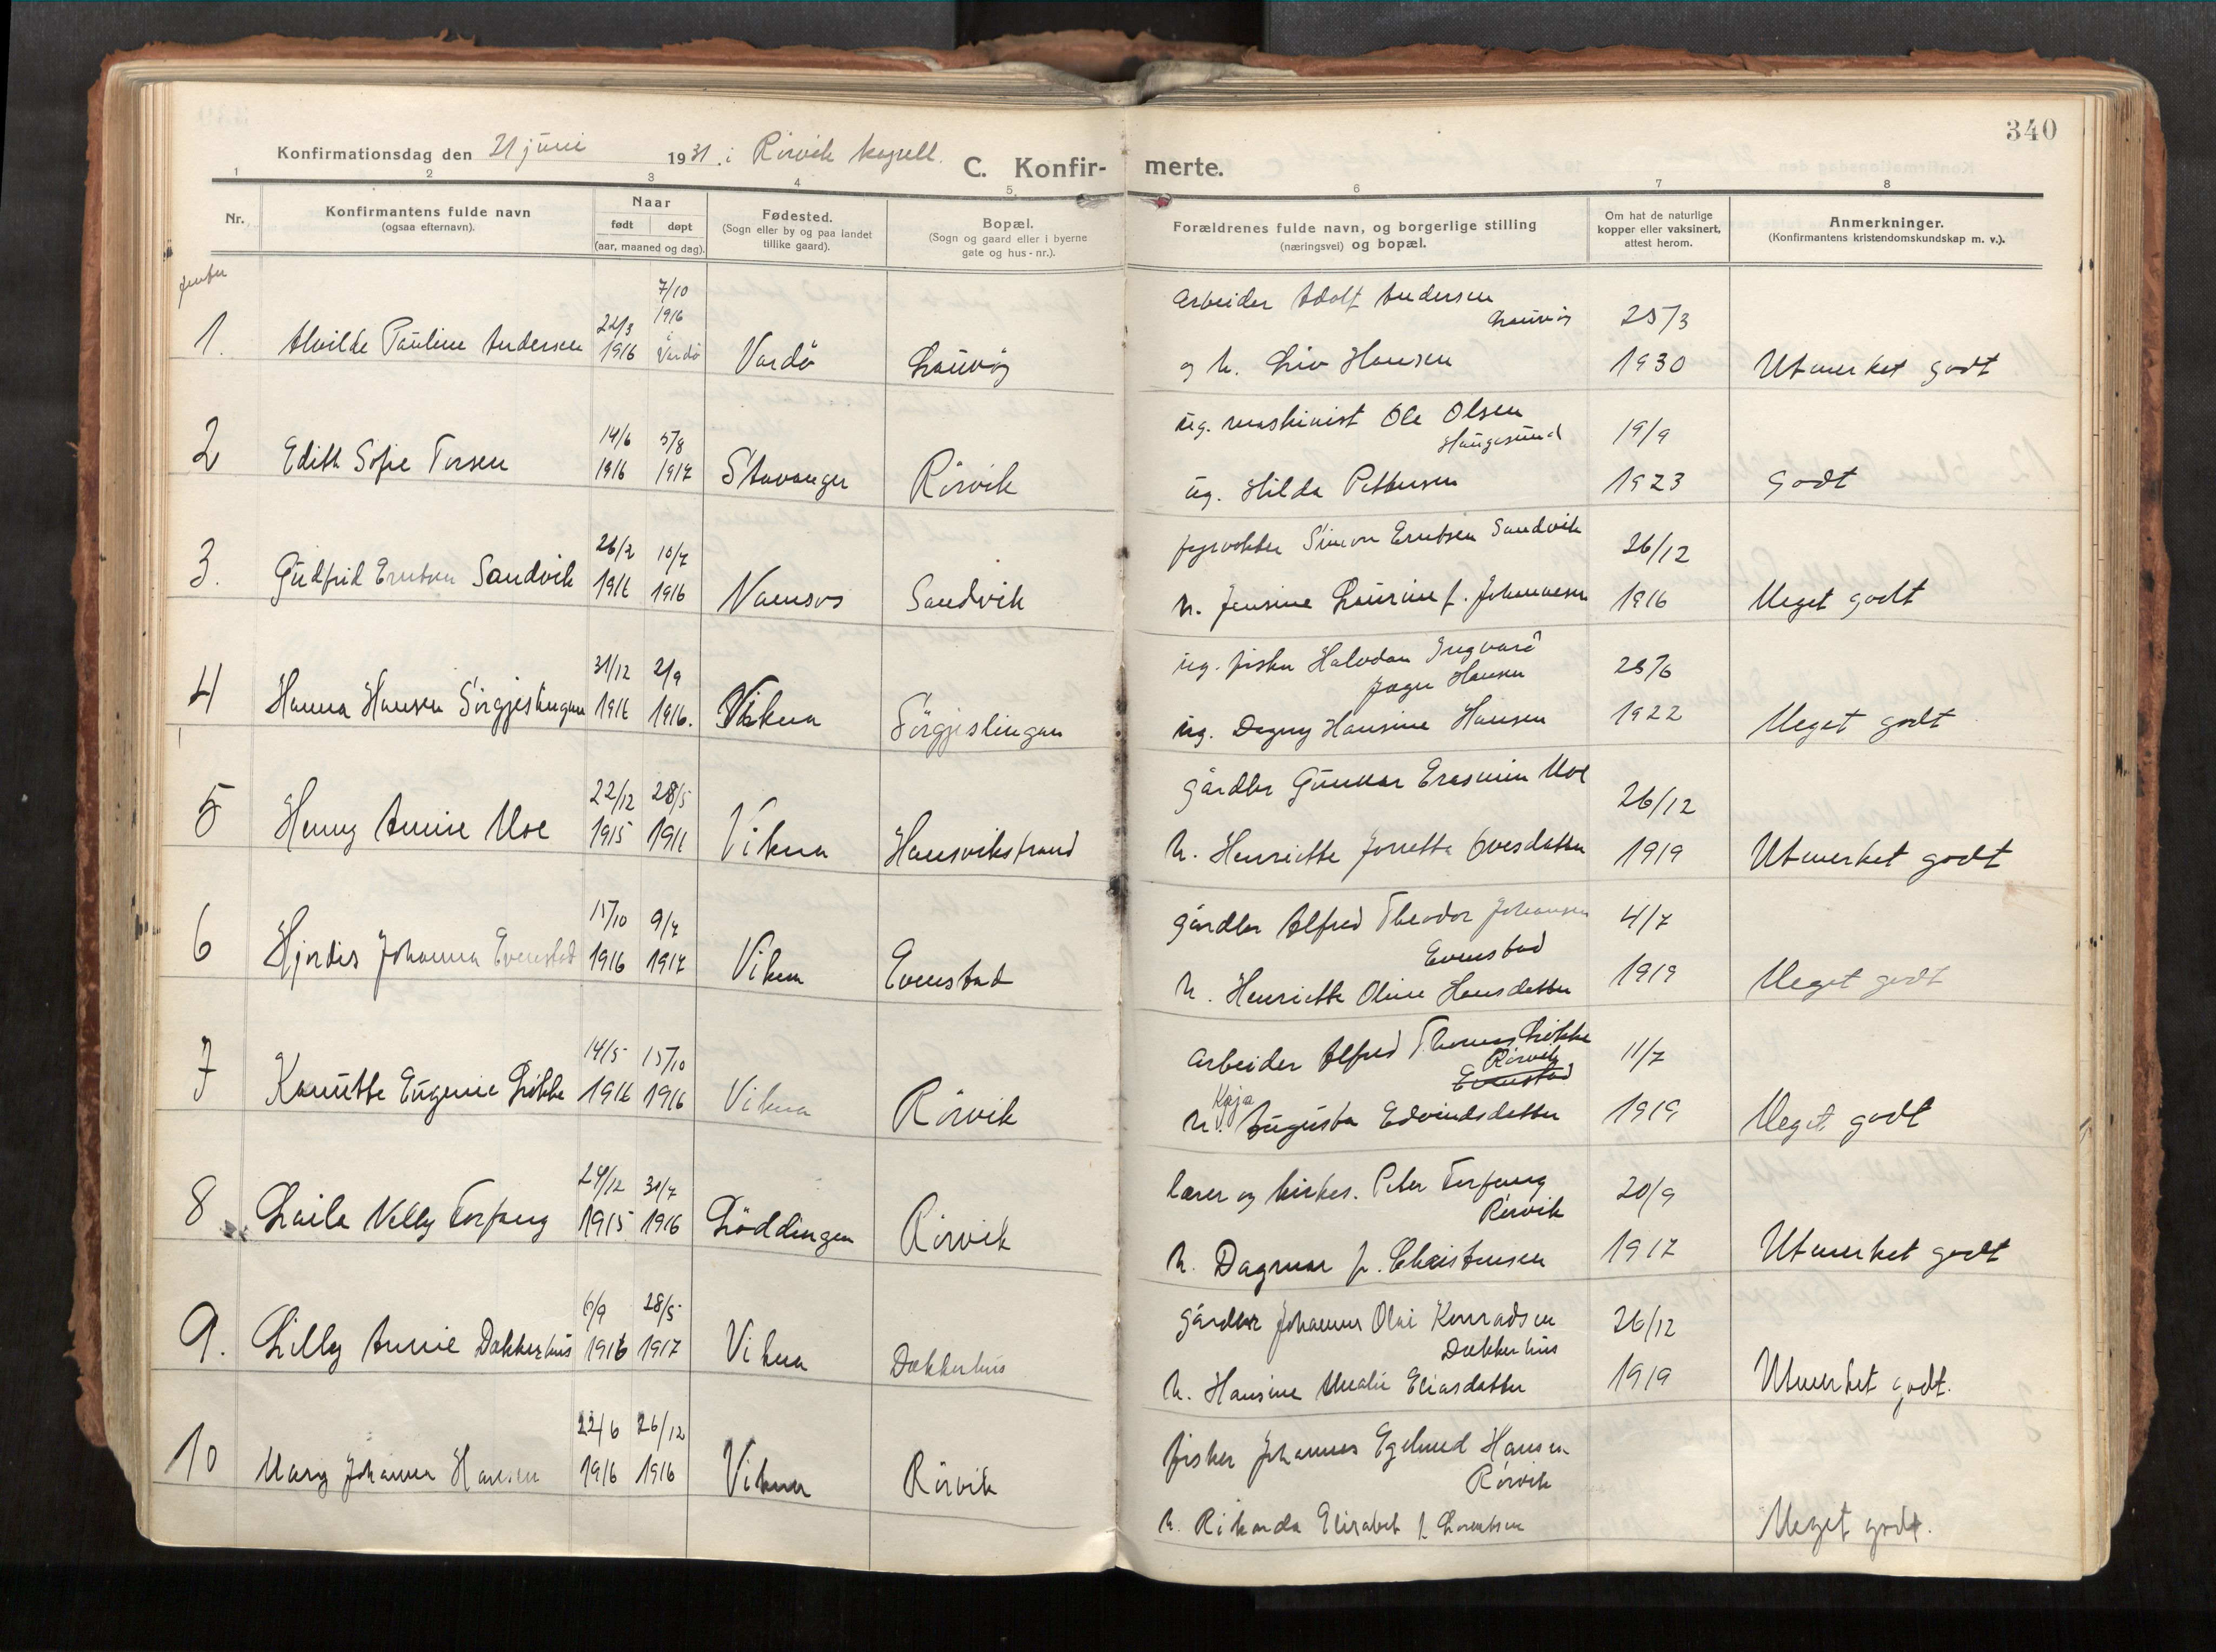 340
Konfirmationsdag den 21 juni 1931. i Rörvik kapell.
C. Konfirmerte.
1 2 3 4 5. 6 7 8
Nr. Konfirmantens fulde navn (ogsaa efternavn). Naar født døpt (aar, maaned og dag). Fødested. (Sogn eller by og paa landet tillike gaard). Bopæl. (Sogn og gaard eller i byerne gate og hus-nr.). Forældrenes fulde navn, og borgerlige stilling (næringsvei) og bopæl. Om hat de naturlige kopper eller vaksinert, attest herom. Anmerkninger. (Konfirmantens kristendomskundskap m. v.).
1. Alvilde Pauline Andersen 22/3 1916 7/10 1916 i Vardö Vardö Lauvöy
Arbeider Adolf Andersen
Lauvöy
og h. Liv Hansen 25/3 1930 Utmerket godt
2 Edith Sofie Torsen 14/6 1916 5/8 1917 Stavanger Rörvik
ug. maskinist Ole Olsen
Haugesund
ug. Hilda Pettersen 19/9 1923 Godt
3. Gudfrid Erntsen Sandvik 26/2 1916 10/7 1916 Namsos Sandvik
fyrvokter Simon Erntsen Sandvik
h. Jensine Laurine f. Johannesen 26/12 1916 Meget godt
4 Hanna Hansen Sörgjeslingan 31/12 1916 2/9 1916. Vikna Sörgjeslingan
ug. fisker Halvdan Ingvard
Jæger Hansen
ug. Dagny Hansine Hansen 25/6 1922 Meget godt
5 Henny Annie Moe 22/12 1915 28/5 1916 Vikna Hansvikstrand
Gårdbr Gunnar Erasmin Moe
h. Henriette Jonetta Ovesdatter 26/12 1919 Utmerket godt
6 Hjördis Johanna Evenstad 15/10 1916 9/4 1917 Vikna Evenstad
Gårdbr Alfred Theodor Johansen
Evenstad
h. Henriette Oline Hansdatter 4/7 1919 Meget godt
7 Kanutte Eugenie Lökke 14/5 1916 15/10 1916 Vikna Rörvik
Arbeider Alfred Thomas Lökke
Rörvik
Evenstad
Kaja
h. Augusta Edvindsdatter 11/7 1919 Meget godt
8 Laila Nelly Torfang 24/12 1915 31/7 1916 Löddingen Rörvik
lærer og kirkes. Peter Torfang
Rörvik
h. Dagmar f. Christensen 20/9 1917 Utmerket godt
9. Lilly Annie Dakkerhus 6/9 1916 28/5 1917 Vikna Dakkerhus
Gårdbr Johannes Olai Konradsen
Dakkerhus
h. Hansine Amalie Eliasdatter 26/12 1919 Utmerket godt.
10 Mary Johanna Hansen 22/6 1916 26/12 1916 Vikna Rörvik
fisker Johannes Egelund Hansen
Rörvik
h. Rikarda Elisabet f. Lorentsen Meget godt.